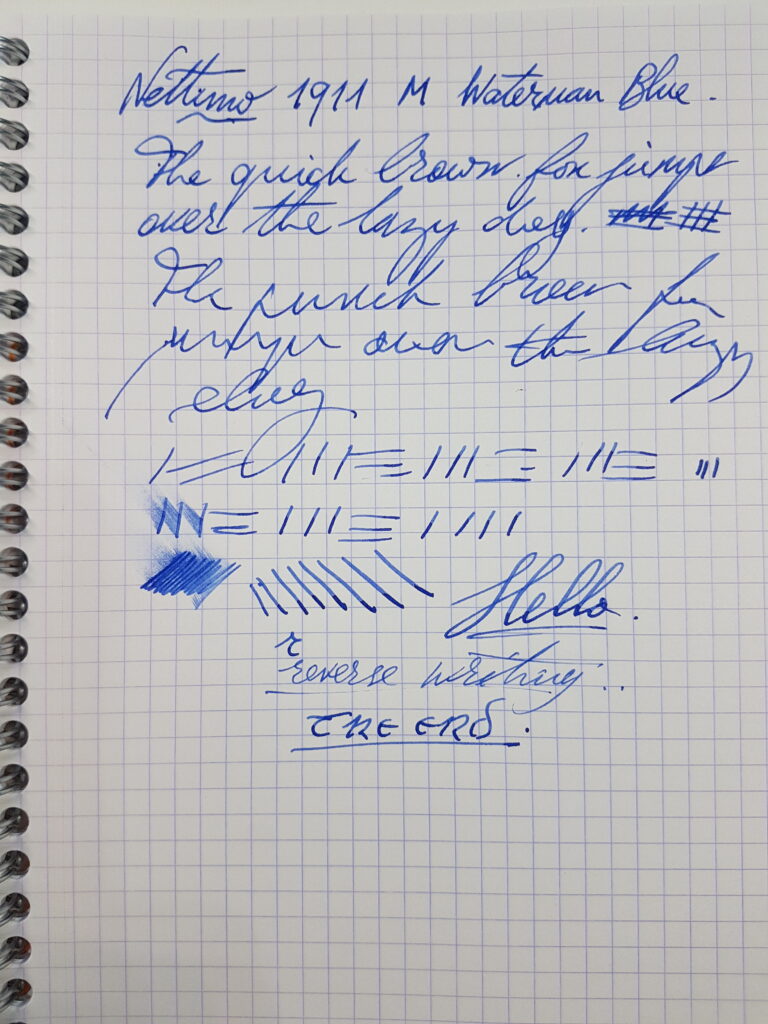 Nettuno 1911 M Waterman Blue.
The quick brown fox jumps
over the lazy dog.
The quick brown fox
jumps over the lazy
dog
Hello.
r
reverse writing..
THE END.